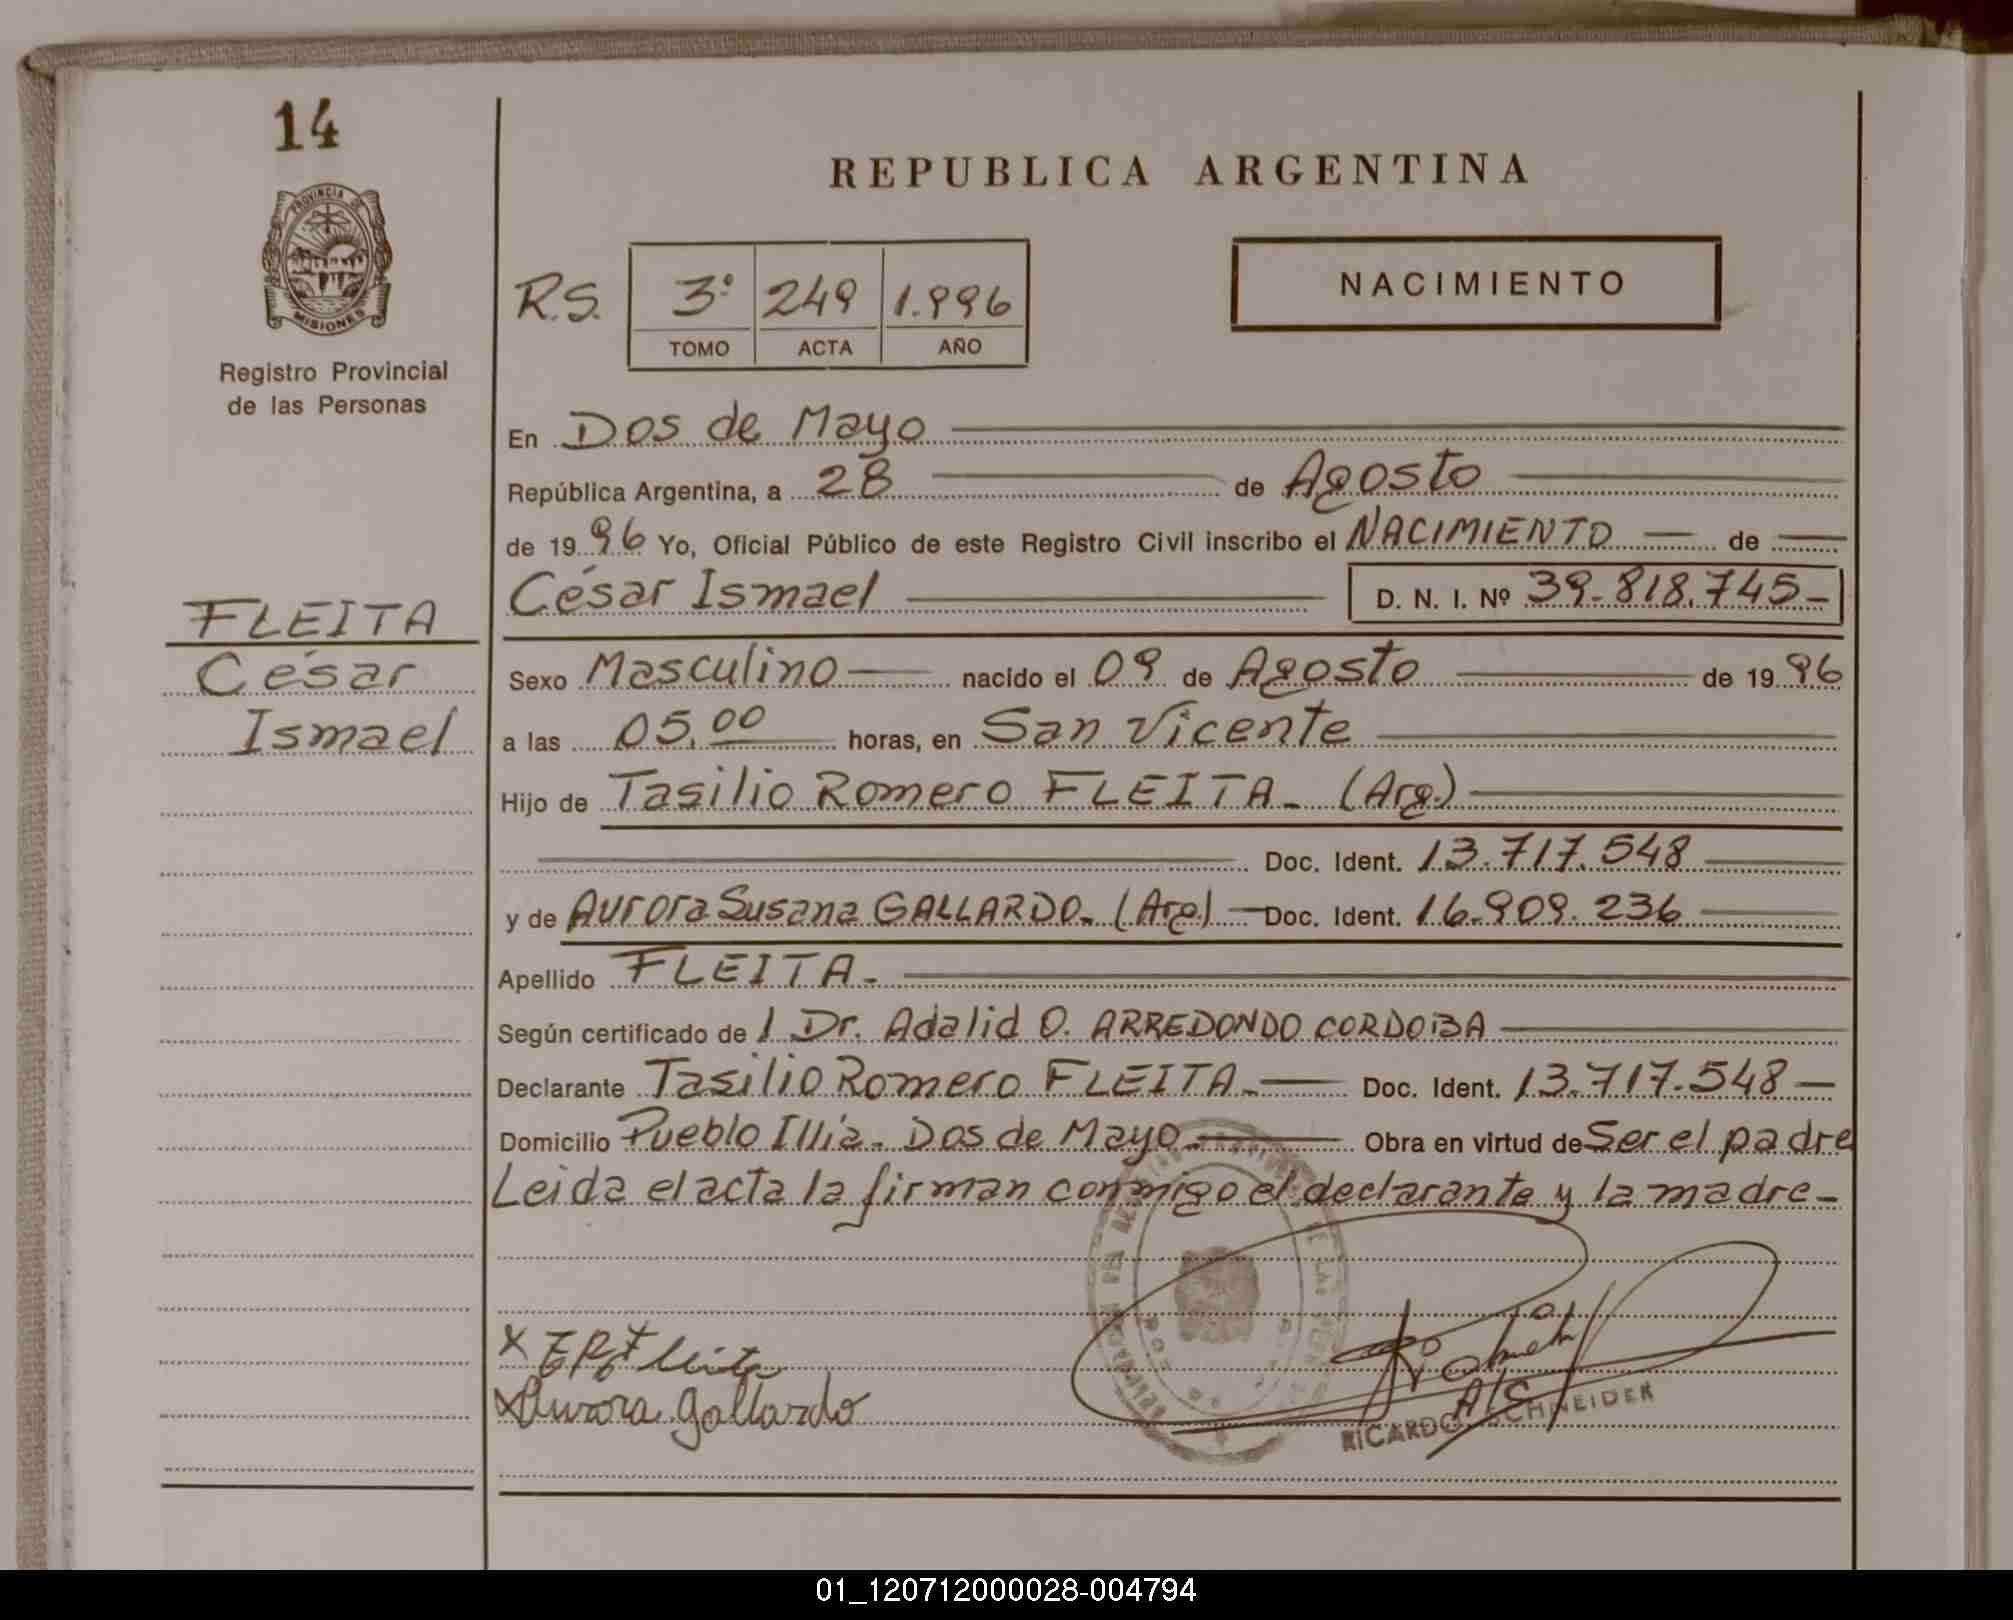 14
PROVINCIA DE
MISIONES
Registro Provincial
de las Personas
FLEITA
César
Ismael
REPUBLICA ARGENTINA
NACIMIENTO
R.S. 3º 249 1.996
TOMO ACTA AÑO
En Dos de Mayo
República Argentina, a 28 de Agosto
de 1996 Yo, Oficial Público de este Registro Civil inscribo el NACIMIENTO de
César Ismael D. N. I. Nº 39.818.745-
Sexo Masculino nacido el 09 de Agosto de 1996
a las 05,00 horas, en San Vicente
Hijo de Tasilio Romero FLEITA- (Arg.)
Doc. Ident. 13.717.548
y de Aurora Susana GALLARDO- (Arg) Doc. Ident. 16.909.236
Apellido FLEITA-
Según certificado de / Dr. Adalid O. ARREDONDO CORDOBA
Declarante Tasilio Romero FLEITA- Doc. Ident. 13.717.548
Domicilio Pueblo Illia- Dos de Mayo- Obra en virtud de Ser el padre
Leida el acta la firman conmigo el declarante y la madre-
x Fleita
x Aurora Gallardo
A/C
RICARDO SCHNEIDER
01_120712000028-004794